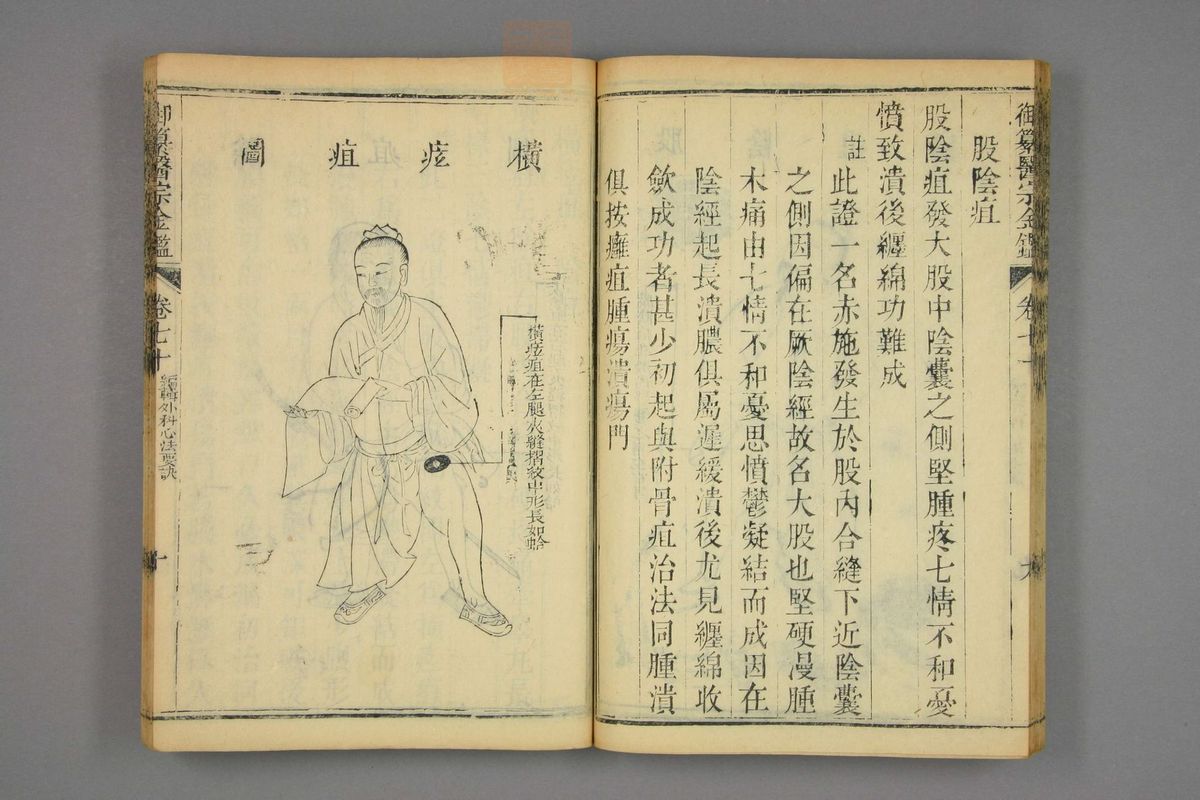 御纂醫宗金鑑
卷七十
股陰疽
股陰疽發大股中陰囊之側堅腫疼七情不和憂
憤致潰後纏綿功難成
註
此證一名赤施發生於股內合縫下近陰囊
之側因偏在厥陰經故名大股也堅硬漫腫
木痛由七情不和憂思憤鬱凝結而成因在
陰經起長潰膿俱屬遲緩潰後尤見纏綿收
斂成功者甚少初起與附骨疽治法同腫潰
俱按癰疽腫瘍潰瘍門
橫痃疽圖
橫痃疽在左腿夾縫摺紋中形長如蛤
御纂醫宗金鑑
卷七十
編輯外科心法要訣
十